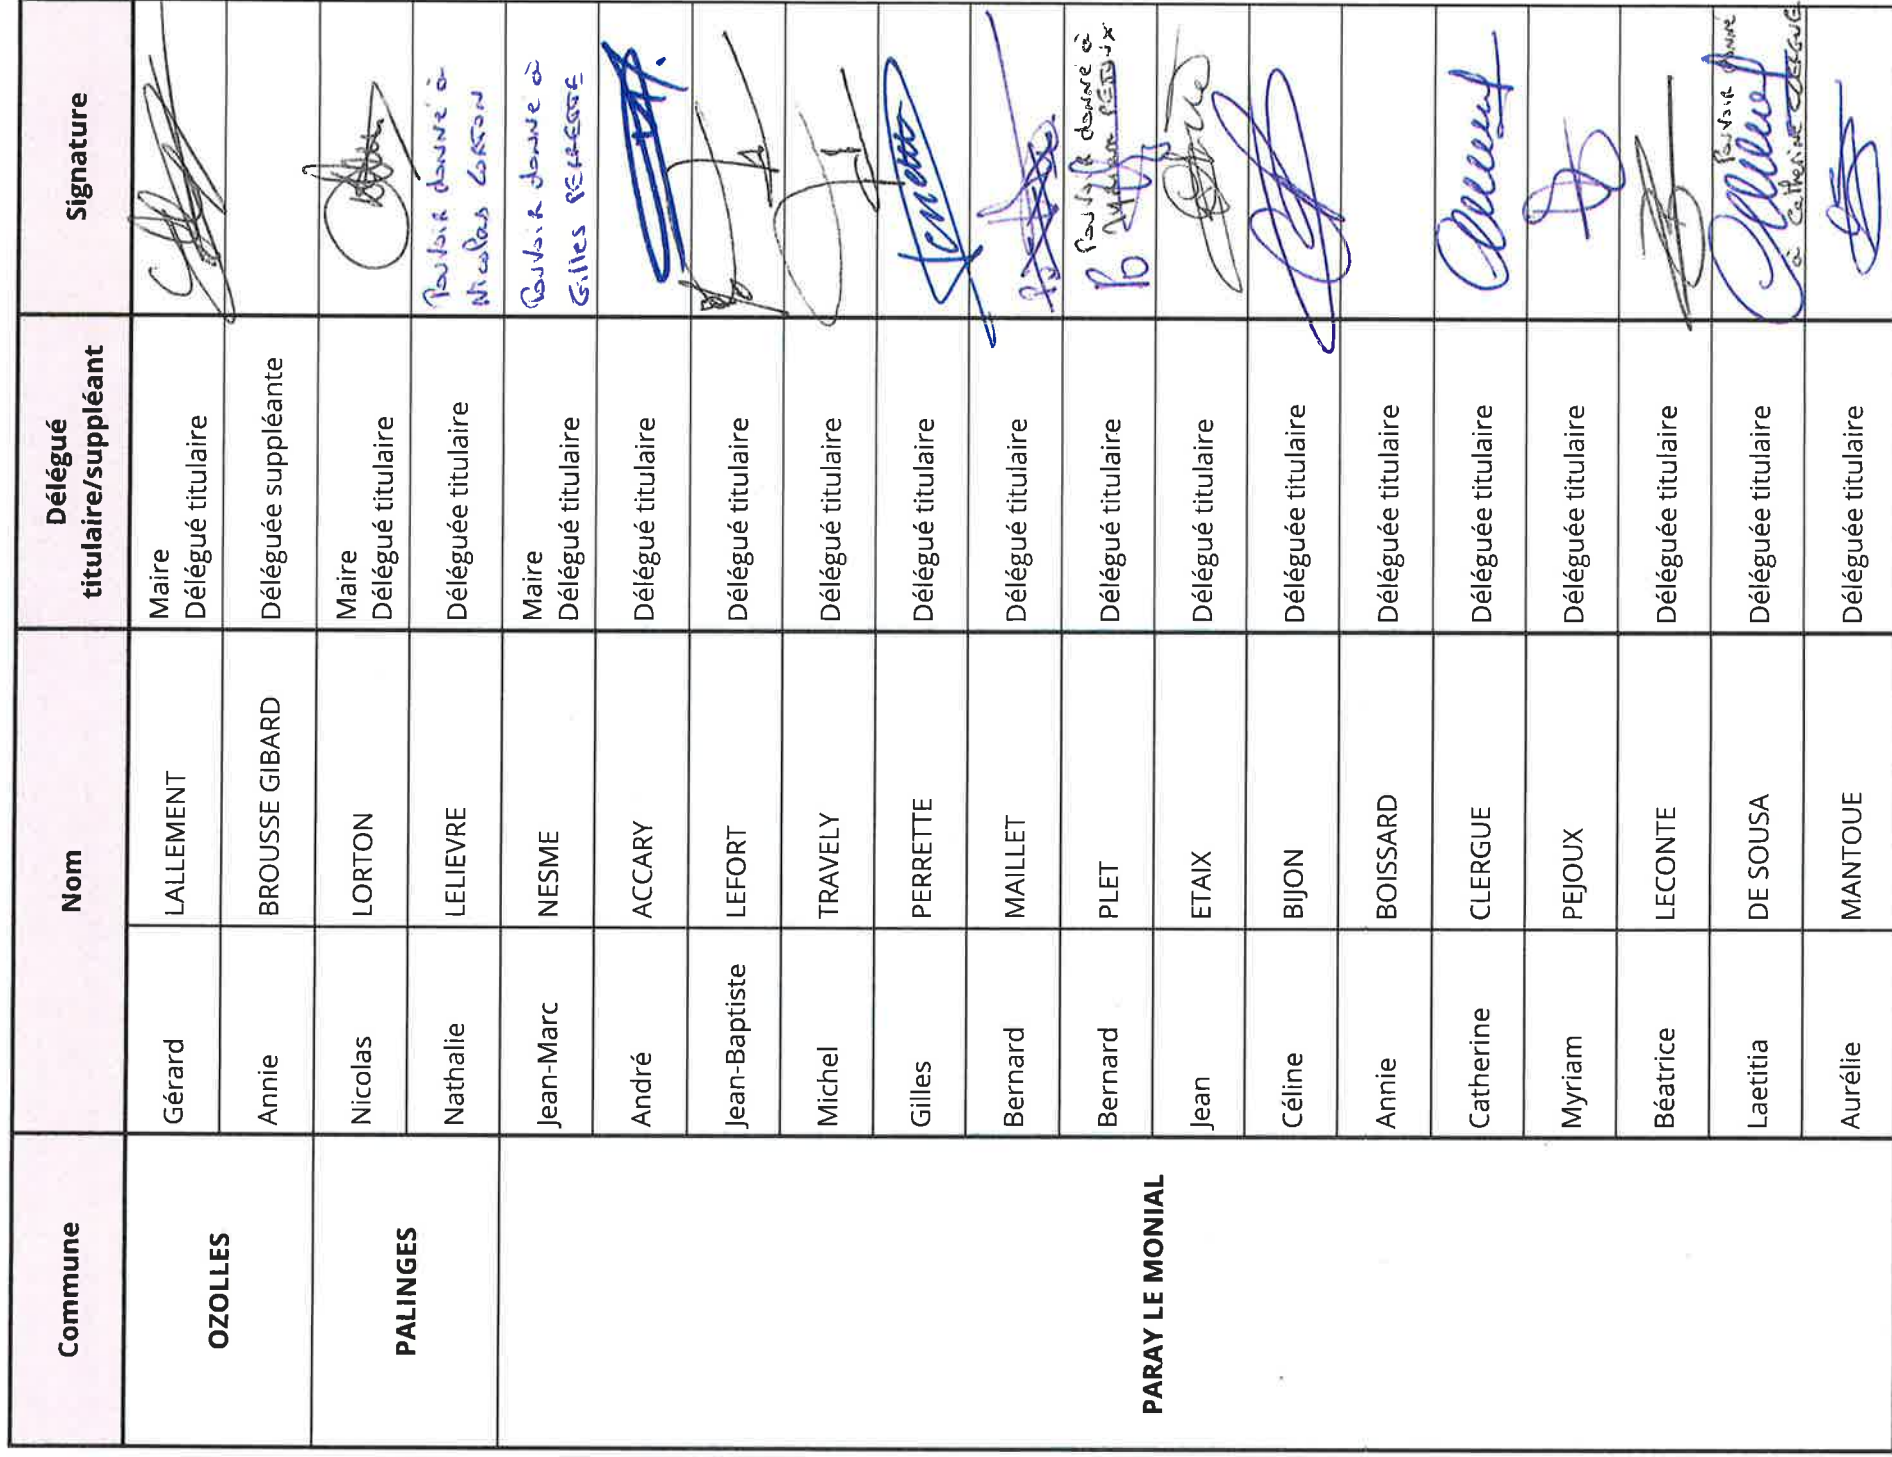 Commune
Nom
Délégué
titulaire/suppléant
Signature
OZOLLES
Gérard
LALLEMENT
Maire
Délégué titulaire
Annie
BROUSSE GIBARD
Déléguée suppléante
PALINGES
Nicolas
LORTON
Maire
Délégué titulaire
Nathalie
LELIEVRE
Déléguée titulaire
Pouvoir donné à
Nicolas LORTON
PARAY LE MONIAL
Jean-Marc
NESME
Maire
Délégué titulaire
Pouvoir donné à
Gilles PERRETTE
André
ACCARY
Délégué titulaire
Jean-Baptiste
LEFORT
Délégué titulaire
Michel
TRAVELY
Délégué titulaire
Gilles
PERRETTE
Délégué titulaire
Bernard
MAILLET
Délégué titulaire
Bernard
PLET
Délégué titulaire
Pouvoir donné à
Myriam PEJOUX
Jean
ETAIX
Délégué titulaire
Céline
BIJON
Déléguée titulaire
Annie
BOISSARD
Déléguée titulaire
Catherine
CLERGUE
Déléguée titulaire
Myriam
PEJOUX
Déléguée titulaire
Béatrice
LECONTE
Déléguée titulaire
Laetitia
DE SOUSA
Déléguée titulaire
Pouvoir donné
à Catherine CLERGUE
Aurélie
MANTOUE
Déléguée titulaire